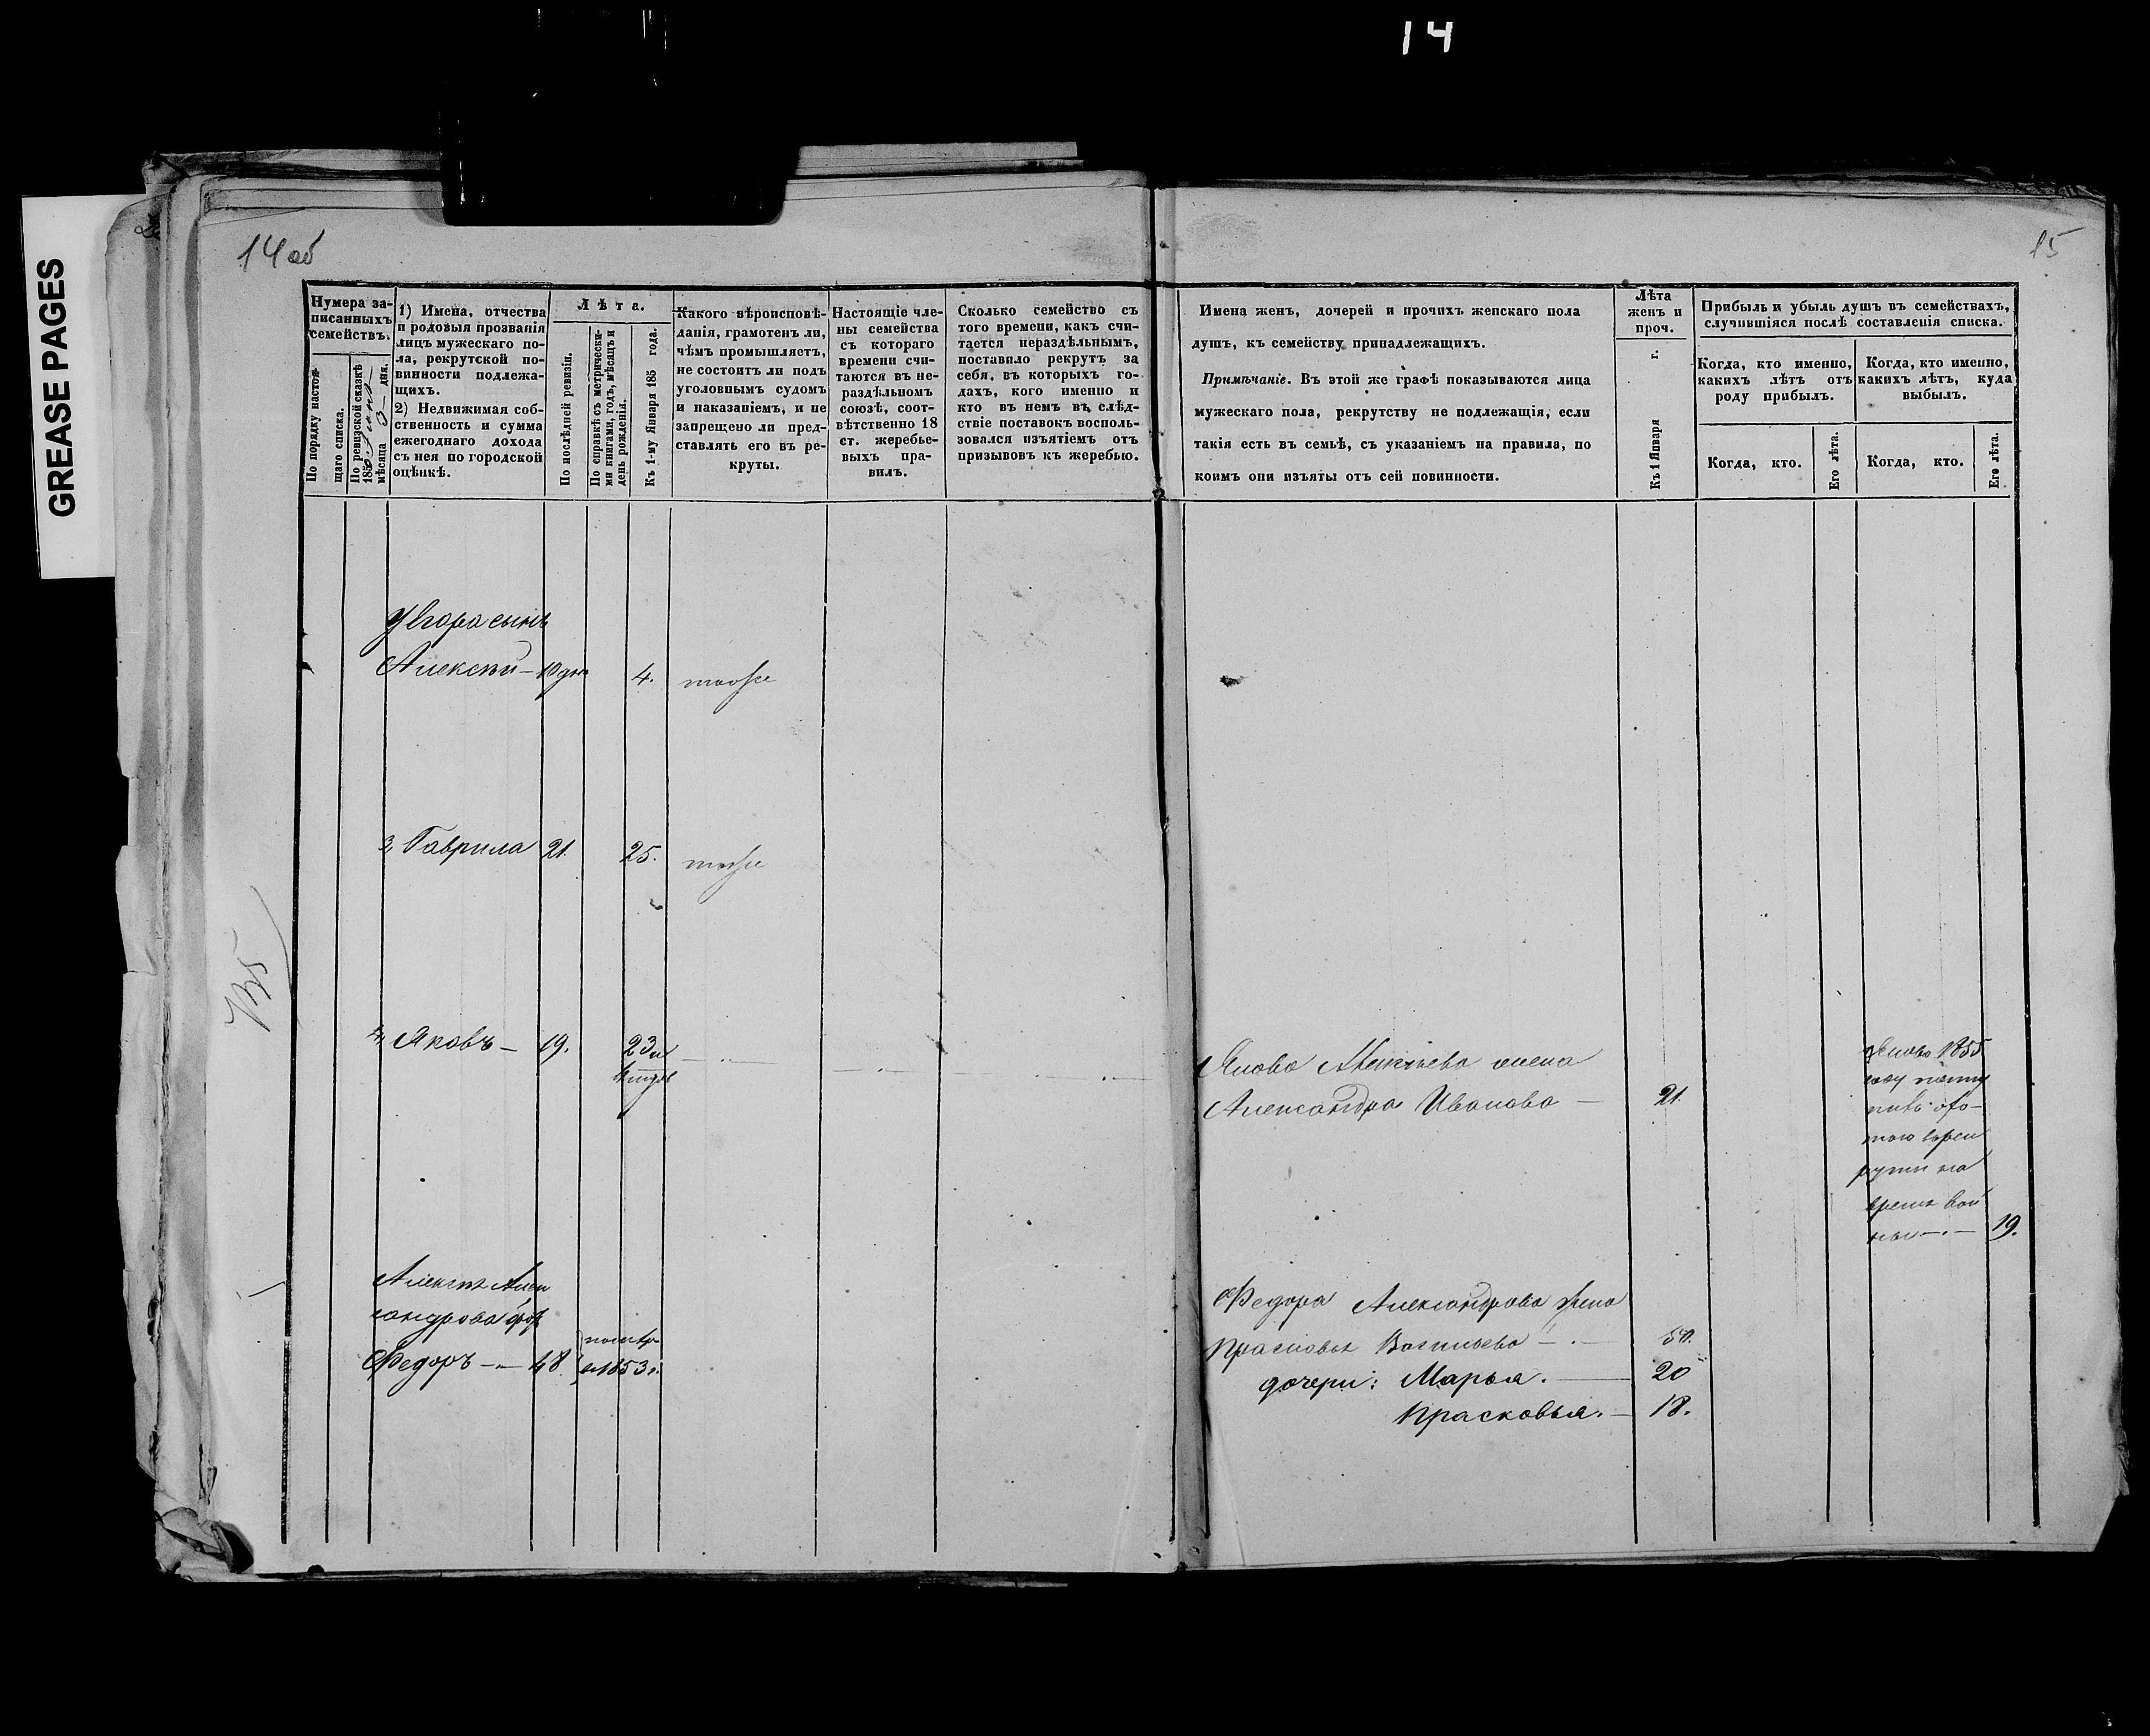 14
GREASE PAGES
14 об
15
Нумера за-
писанныхъ
семействъ.
По порядку настоя-
щаго списка.
По ревизской сказкѣ
185
мѣсяца 3 дня.
1) Имена, отчества
и родовыя прозванія
лицъ мужескаго по-
ла, рекрутской по-
винности подлежа-
щихъ.
2) Недвижимая соб-
ственность и сумма
ежегоднаго дохода
съ нея по городской
оцѣнкѣ.
Лѣта.
По послѣдней ревизіи.
По справкѣ съ метрически-
ми книгами, годъ, мѣсяцъ и
день рожденія.
Къ 1-му Января 185 года.
Какого вѣроисповѣ-
данія, грамотенъ ли,
чѣмъ промышляетъ,
не состоитъ ли подъ
уголовнымъ судомъ
и наказаніемъ, и не
запрещено ли пред-
ставлять его въ ре-
круты.
Настоящіе чле-
ны семейства
съ котораго
времени счи-
таются въ не-
раздѣльномъ
союзѣ, соот-
вѣтственно 18
ст. жеребье-
выхъ пра-
вилъ.
Сколько семейство съ
того времени, какъ счи-
тается нераздѣльнымъ,
поставило рекрутъ за
себя, въ которыхъ го-
дахъ, кого именно и
кто въ немъ въ слѣд-
ствіе поставокъ восполь-
зовался изъятіемъ отъ
призывовъ къ жеребью.
Имена женъ, дочерей и прочихъ женскаго пола
душъ, къ семейству принадлежащихъ.
Примѣчаніе. Въ этой же графѣ показываются лица
мужескаго пола, рекрутству не подлежащія, если
такія есть въ семьѣ, съ указаніемъ на правила, по
коимъ они изъяты отъ сей повинности.
Лѣта
женъ и
проч.
Къ 1 Января г.
Прибыль и убыль душъ въ семействахъ,
случившіяся послѣ составленія списка.
Когда, кто именно,
какихъ лѣтъ отъ
роду прибылъ.
Когда, кто именно,
какихъ лѣтъ, куда
выбылъ.
Когда, кто.
Его лѣта.
Когда, кто.
Его лѣта.
У Егора сынъ
Алексѣй — 10 дн 4. тоже
3, Гаврила 21. 25. тоже
4, Яковъ — 19. 23
Якова Алексѣева жена
Александра Иванова — 21.
Яковъ 1855
году посту
пивъ охо-
тою въ рек
руты на
время вой
ны — 19.
Алексѣя Алек
сандрова
Федоръ — 48. 1853 г.
Федора Александрова жена
Прасковья Васильева — 50.
дочери: Марья. — 20
Прасковья. — 18.